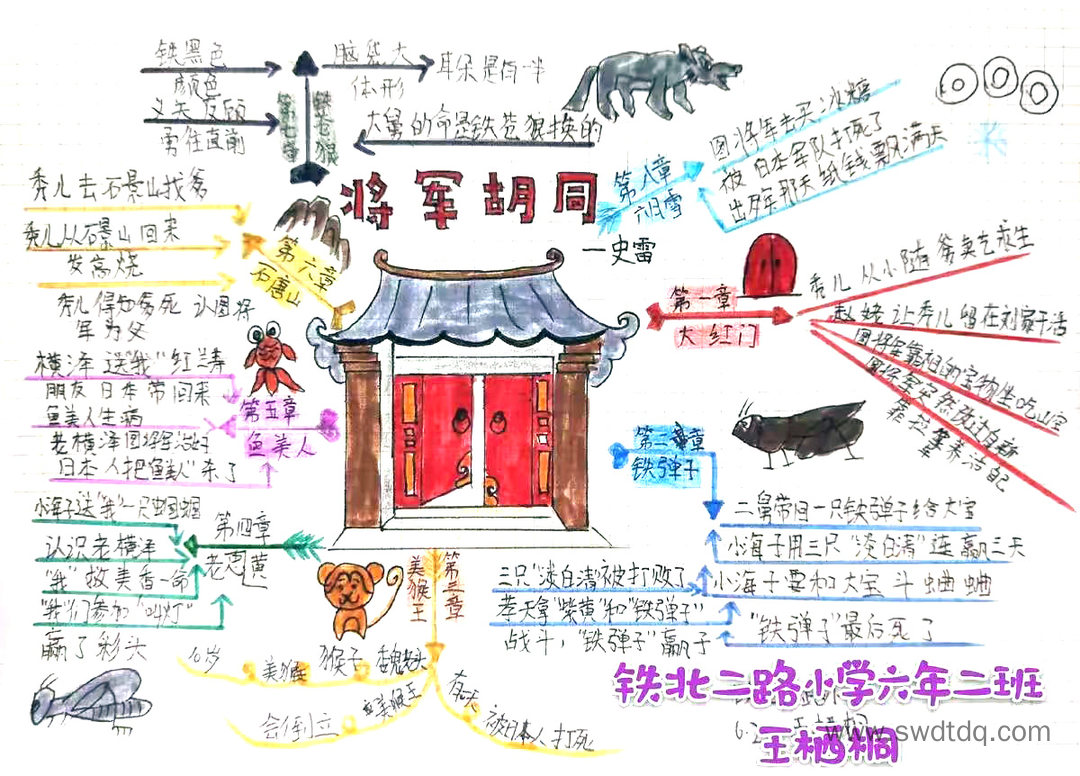 将军胡同
一史雷
第一章
大红门
秀儿从小随爹卖艺求生
赵姥让秀儿留在刘家干活
团将军靠祖助宝物坐吃山空
团将军突然改过自新
靠拉车养活自己
第二章
铁弹子
二舅带回一只铁弹子给大宝
小海子用三只“淡白清”连赢三天
小海子要和大宝斗蛐蛐
“铁弹子”最后死了
三只“淡白清”被打败了
孝天拿“紫黄”和“铁弹子”
战斗，“铁弹子”赢了
第三章
美猴王
10岁
美猴
猴子
会倒立
美猴王
被日本人打死
第四章
老恩黄
小海子送“我”一只蝈蝈
认识老横泽
“我”救美香一命
“我”们参加“叫灯”
赢了彩头
第五章
鱼美人
横泽送“我”红寿
朋友日本带回来
鱼美人生病
老横泽团将军治好
日本人把“鱼美人”杀了
第六章
石唐山
秀儿去石景山找爹
秀儿从石景山回来
发高烧
秀儿得知爹死 认团将
军为父
第七章
铁苍狼
铁黑色
颜色
义无反顾
勇往直前
脑袋大
体形
耳朵是狗一半
大舅的命是铁苍狼换的
第八章
六月雪
团将军去买冰糖
被日本军队打死了
出殡那天纸钱飘满天
铁北二路小学六年二班
王栖桐
www.swdtdq.com